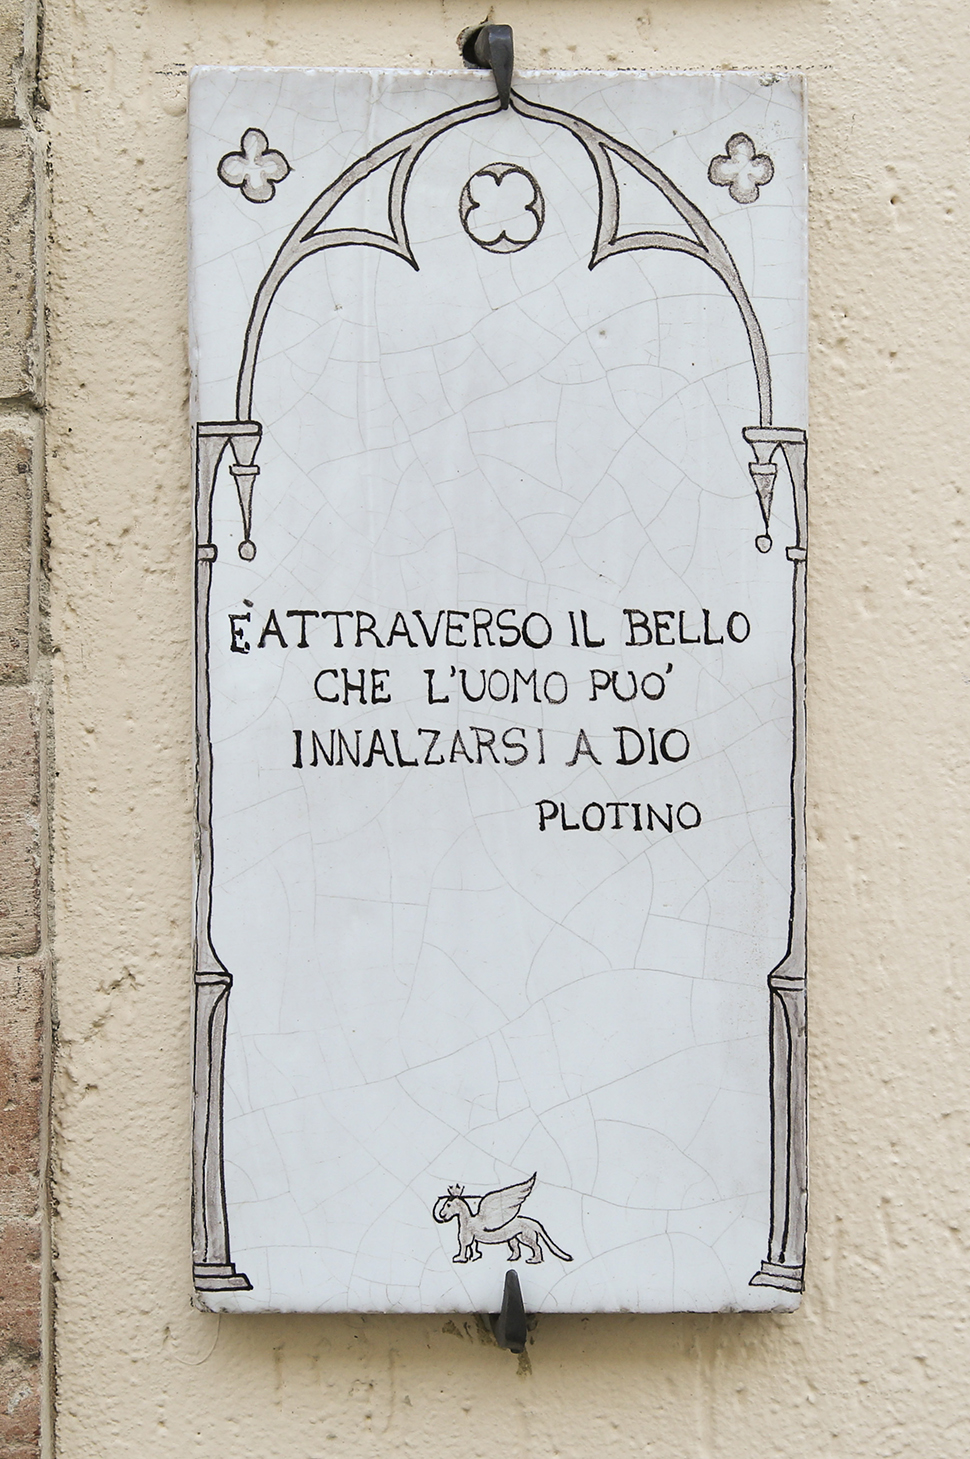 È ATTRAVERSO IL BELLO
CHE L'UOMO PUO'
INNALZARSI A DIO
PLOTINO